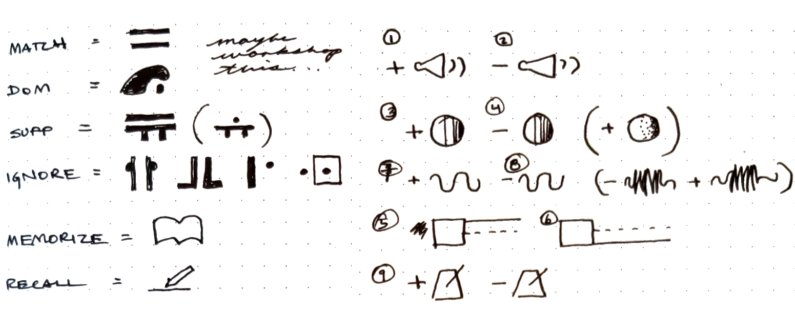 MATCH =
maybe
workshop
this...
DOM =
SUPP = ( )
IGNORE =
MEMORIZE =
RECALL =
1 +
2 -
3 +
4 -
(+ )
7 +
8 -
(- + )
5
6
9 +
-